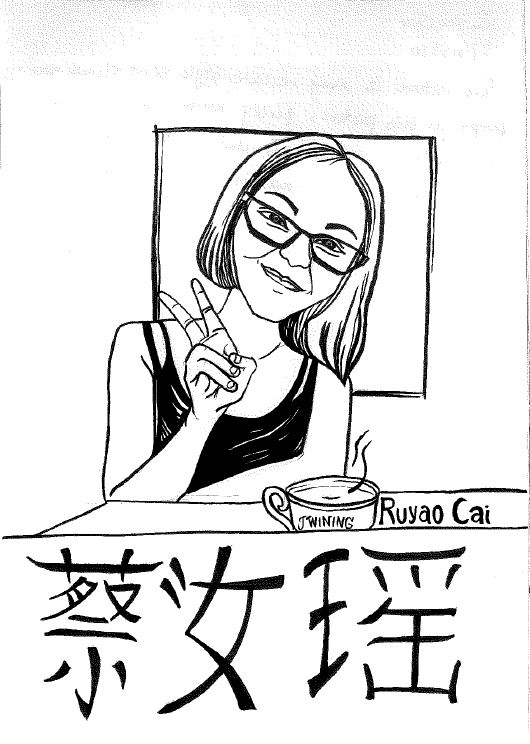 TWINING
Ruyao Cai
蔡汝瑶